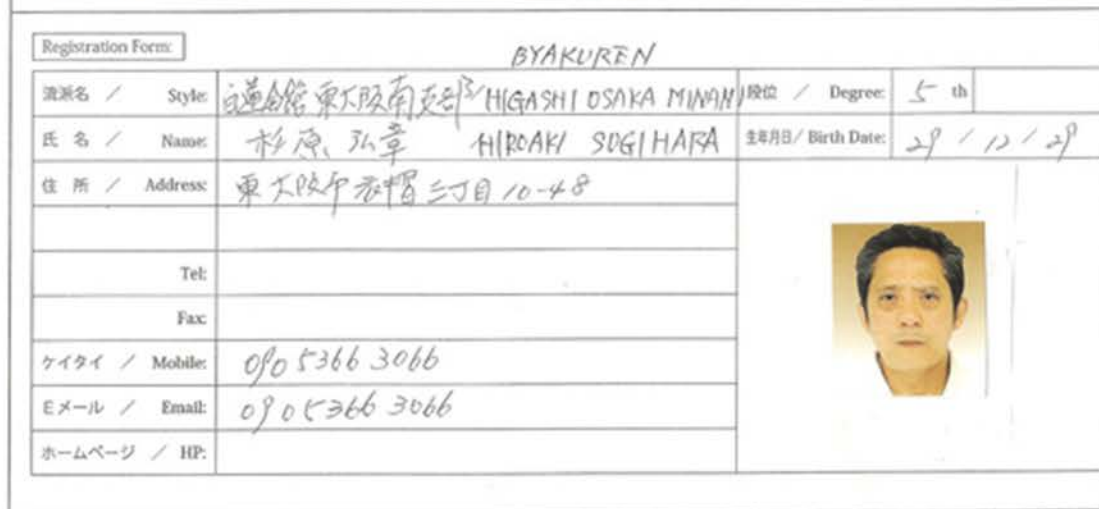 Registration Form:
BYAKUREN
流派名 / Style: 白蓮会館 東大阪南支部/HIGASHI OSAKA MINAMI 段位 / Degree: 5 th
氏 名 / Name: 杉原 弘章 HIROAKI SUGIHARA 生年月日/ Birth Date: 29 / 12 / 29
住 所 / Address: 東大阪市衣摺三丁目10-48
Tel:
Fax:
ケイタイ / Mobile: 090 5366 3066
Eメール / Email: 090 5366 3066
ホームページ / HP: